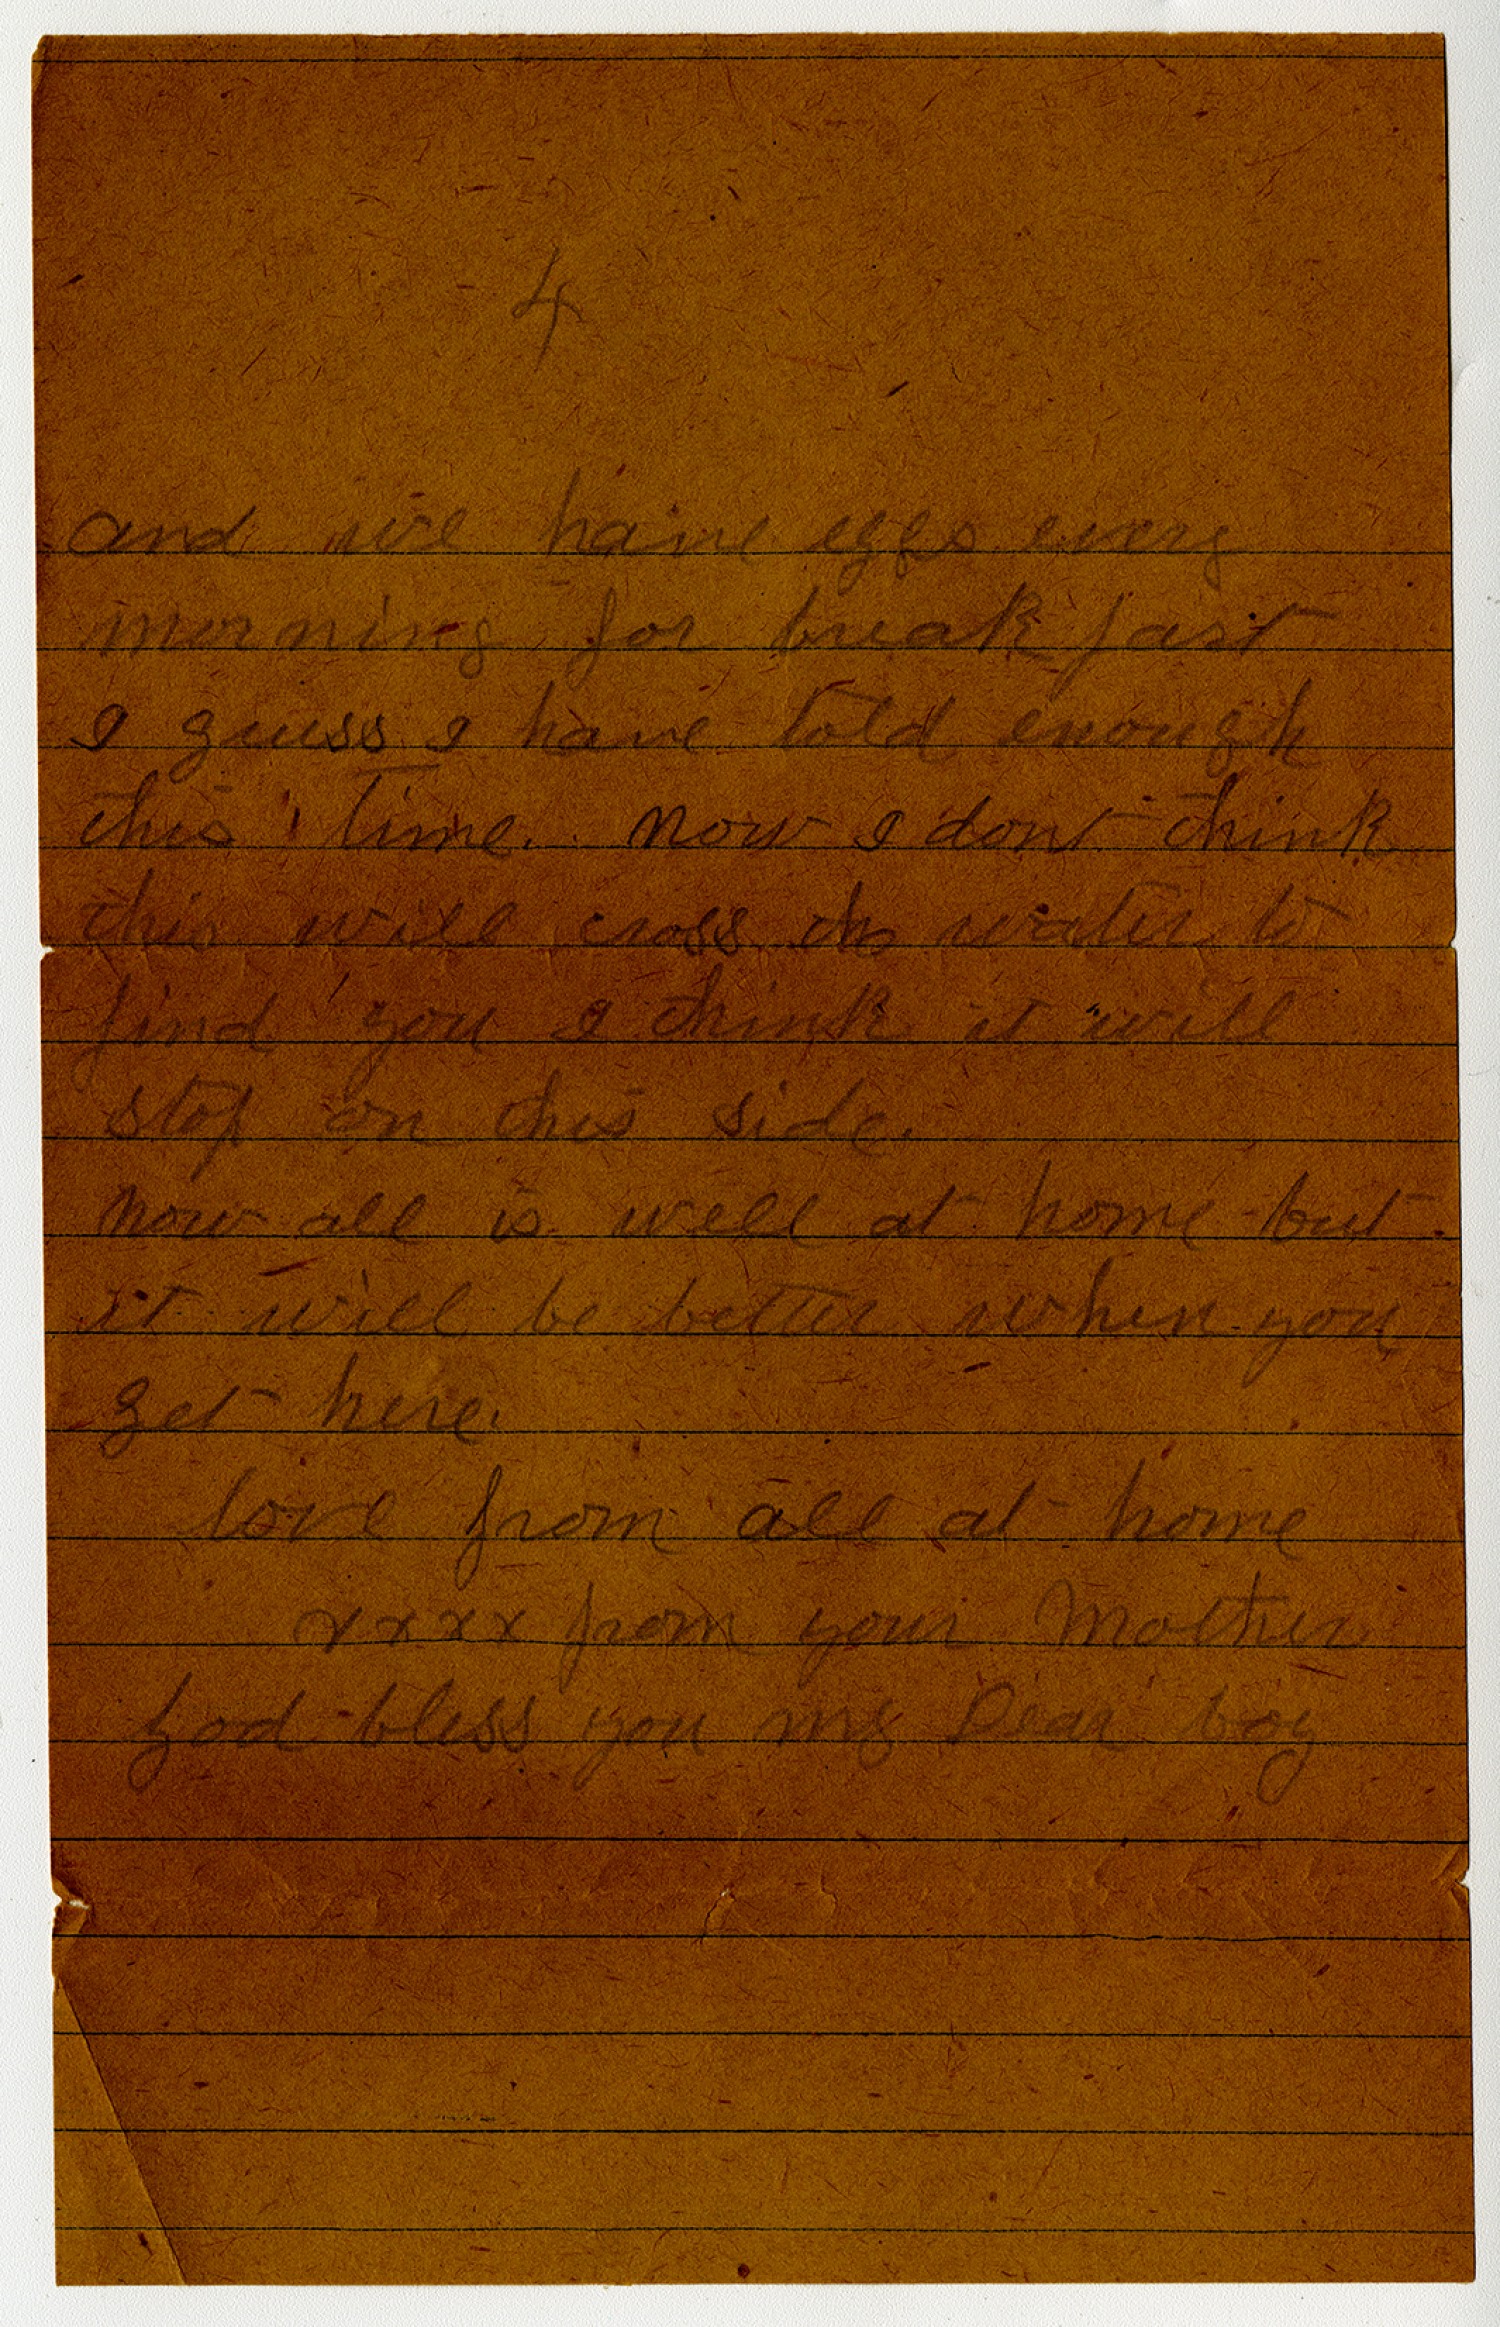 4
and we have eggs every
morning for breakfast
I guess I have told enough
this time. Now I dont think
this will cross the water to
find you I think it will
stop on this side.
Now all is well at home but
it will be better when you
get here.
love from all at home
xxxx from your Mother
God bless you my Dear boy